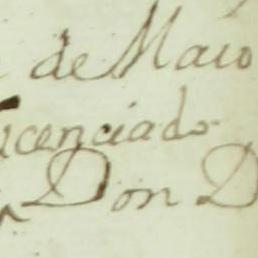 de Maio
icenciado
Don D